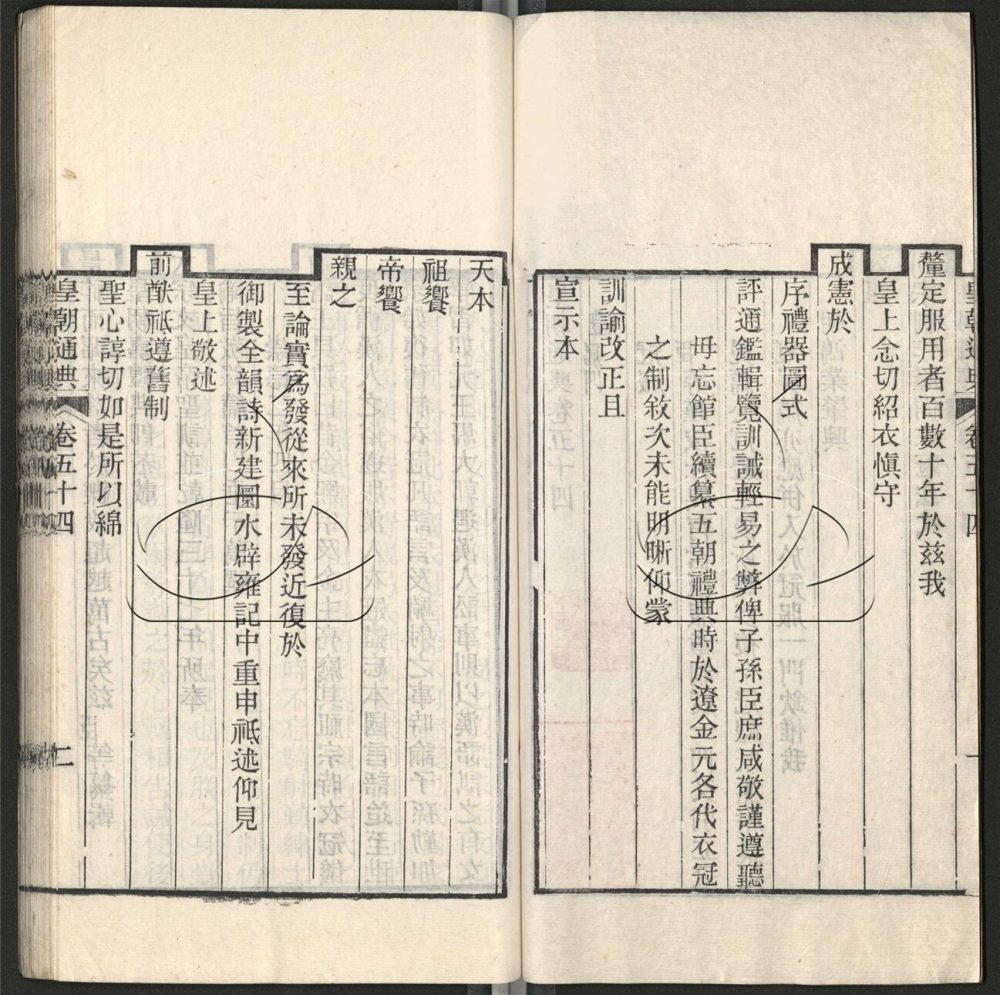 皇朝通典 卷五十四 一
釐定服用者百數十年於茲我
皇上念切紹衣愼守
成憲於
序禮器圖式
評通鑑輯覽訓誡輕易之弊俾子孫臣庶咸敬謹遵聽
毋忘館臣續纂五朝禮典時於遼金元各代衣冠
之制敘次未能明晰仰蒙
訓諭改正且
宣示本
天本
祖饗
帝饗
親之
至論實爲發從來所未發近復於
御製全韻詩新建圜水辟雍記中重申祇述仰見
皇上敬述
前猷祇遵舊制
聖心諄切如是所以綿
皇朝通典 卷五十四 二